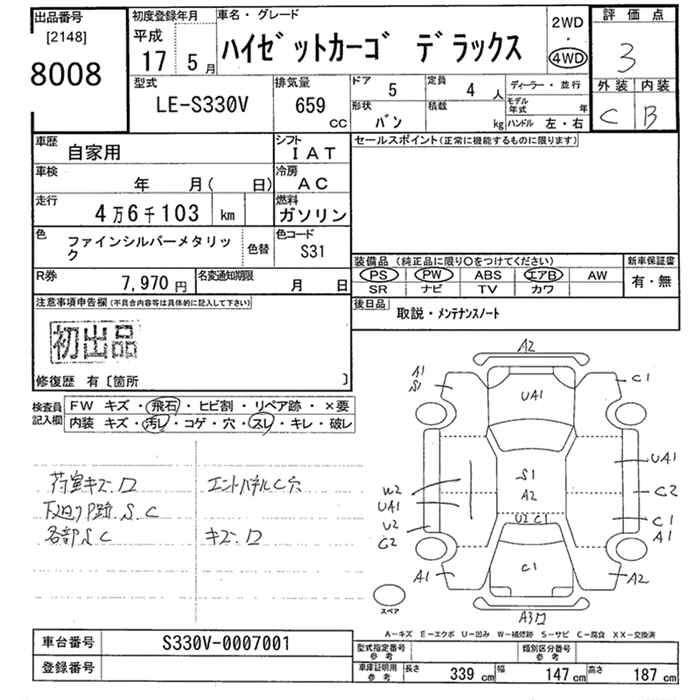 出品番号
[2148]
8008
初度登録年月
平成
17 5月
車名・グレード
ハイゼットカーゴ デラックス
2WD
・
4WD
評価点
3
外装 内装
C B
型式
LE-S330V
排気量
659
CC
ドア
5
定員
4 人
形状
バン
積載
kg
ディーラー・並行
モデル年式 年
ハンドル 左・右
車歴
自家用
シフト
IAT
車検
年 月( 日)
冷房
AC
走行
4万6千103 km
燃料
ガソリン
色
ファインシルバーメタリック
色替
色コード
S31
R券
7,970円
名変通知期限
月 日
セールスポイント(正常に機能するものに限ります)
装備品(純正品に限り○をつけてください)
PS PW ABS エアB AW
SR ナビ TV カワ
新車保証書
有・無
後日品
取説・メンテナンスノート
注意事項申告欄(不具合内容等は具体的に記入して下さい)
初出品
修復歴 有〔箇所 〕
検査員記入欄
FW キズ・飛石・ヒビ割・リペア跡・×要
内装 キズ・汚レ・コゲ・穴・スレ・キレ・破レ
荷室キズ.ロ
下廻りP跡.S.C
各部S.C
エンドパネルC穴
キズ.ロ
A2
A1
S1
C1
UA1
S1
A2
U2 C1
C1
W2
UA1
U2
C2
UA1
C2
C1
A1
A1
A2
A3ロ
スペア
A−キズ E−エクボ U−凹み W−補修跡 S−サビ C−腐食 XX−交換済
車台番号
S330V-0007001
登録番号
型式指定番号
参考
類別区分番号
参考
車庫証明用
参考
長さ 339 cm
幅 147 cm
高さ 187 cm